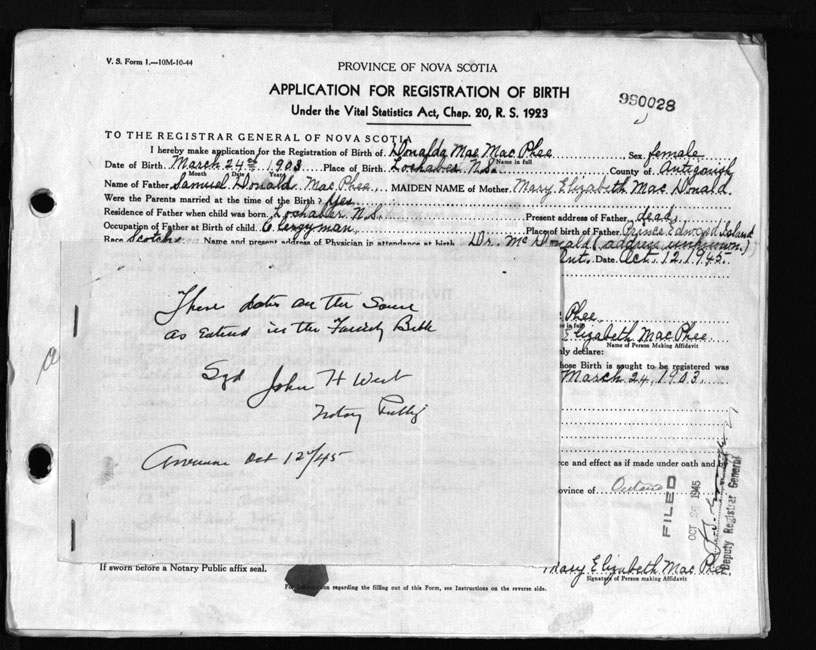 V. S. Form 1.—10M-10-44
PROVINCE OF NOVA SCOTIA
APPLICATION FOR REGISTRATION OF BIRTH
Under the Vital Statistics Act, Chap. 20, R. S. 1923
990028
TO THE REGISTRAR GENERAL OF NOVA SCOTIA
I hereby make application for the Registration of Birth of Donalda Mae Mac Phee Sex female
Name in full
Date of Birth March 24th 1903 Place of Birth Lochaber N.S. County of Antigonish
Month Date Year
Name of Father Samuel Donald Mac Phee MAIDEN NAME of Mother Mary Elizabeth Mac Donald.
Were the Parents married at the time of the Birth? Yes
Residence of Father when child was born Lochaber N.S. Present address of Father dead
Occupation of Father at Birth of child Clergyman Place of birth of Father Prince Edward Island
Race Scotch Name and present address of Physician in attendance at birth Dr. Mc Donald (address unknown.)
Ont. Date Oct. 12, 1945.
These dates are the same
as in the Family Bible
Sgd John H West
Notary Public
Oct 12/45
Phee
in full
Elizabeth Mac Phee
Name of Person Making Affidavit
ly declare:
hose Birth is sought to be registered was
March 24, 1903
ce and effect as if made under oath and by
ovince of Ontario
FILED
OCT 1945
Deputy Registrar General
If sworn before a Notary Public affix seal.
Mary Elizabeth Mac Phee
Signature of Person making Affidavit
For information regarding the filling out of this Form, see Instructions on the reverse side.